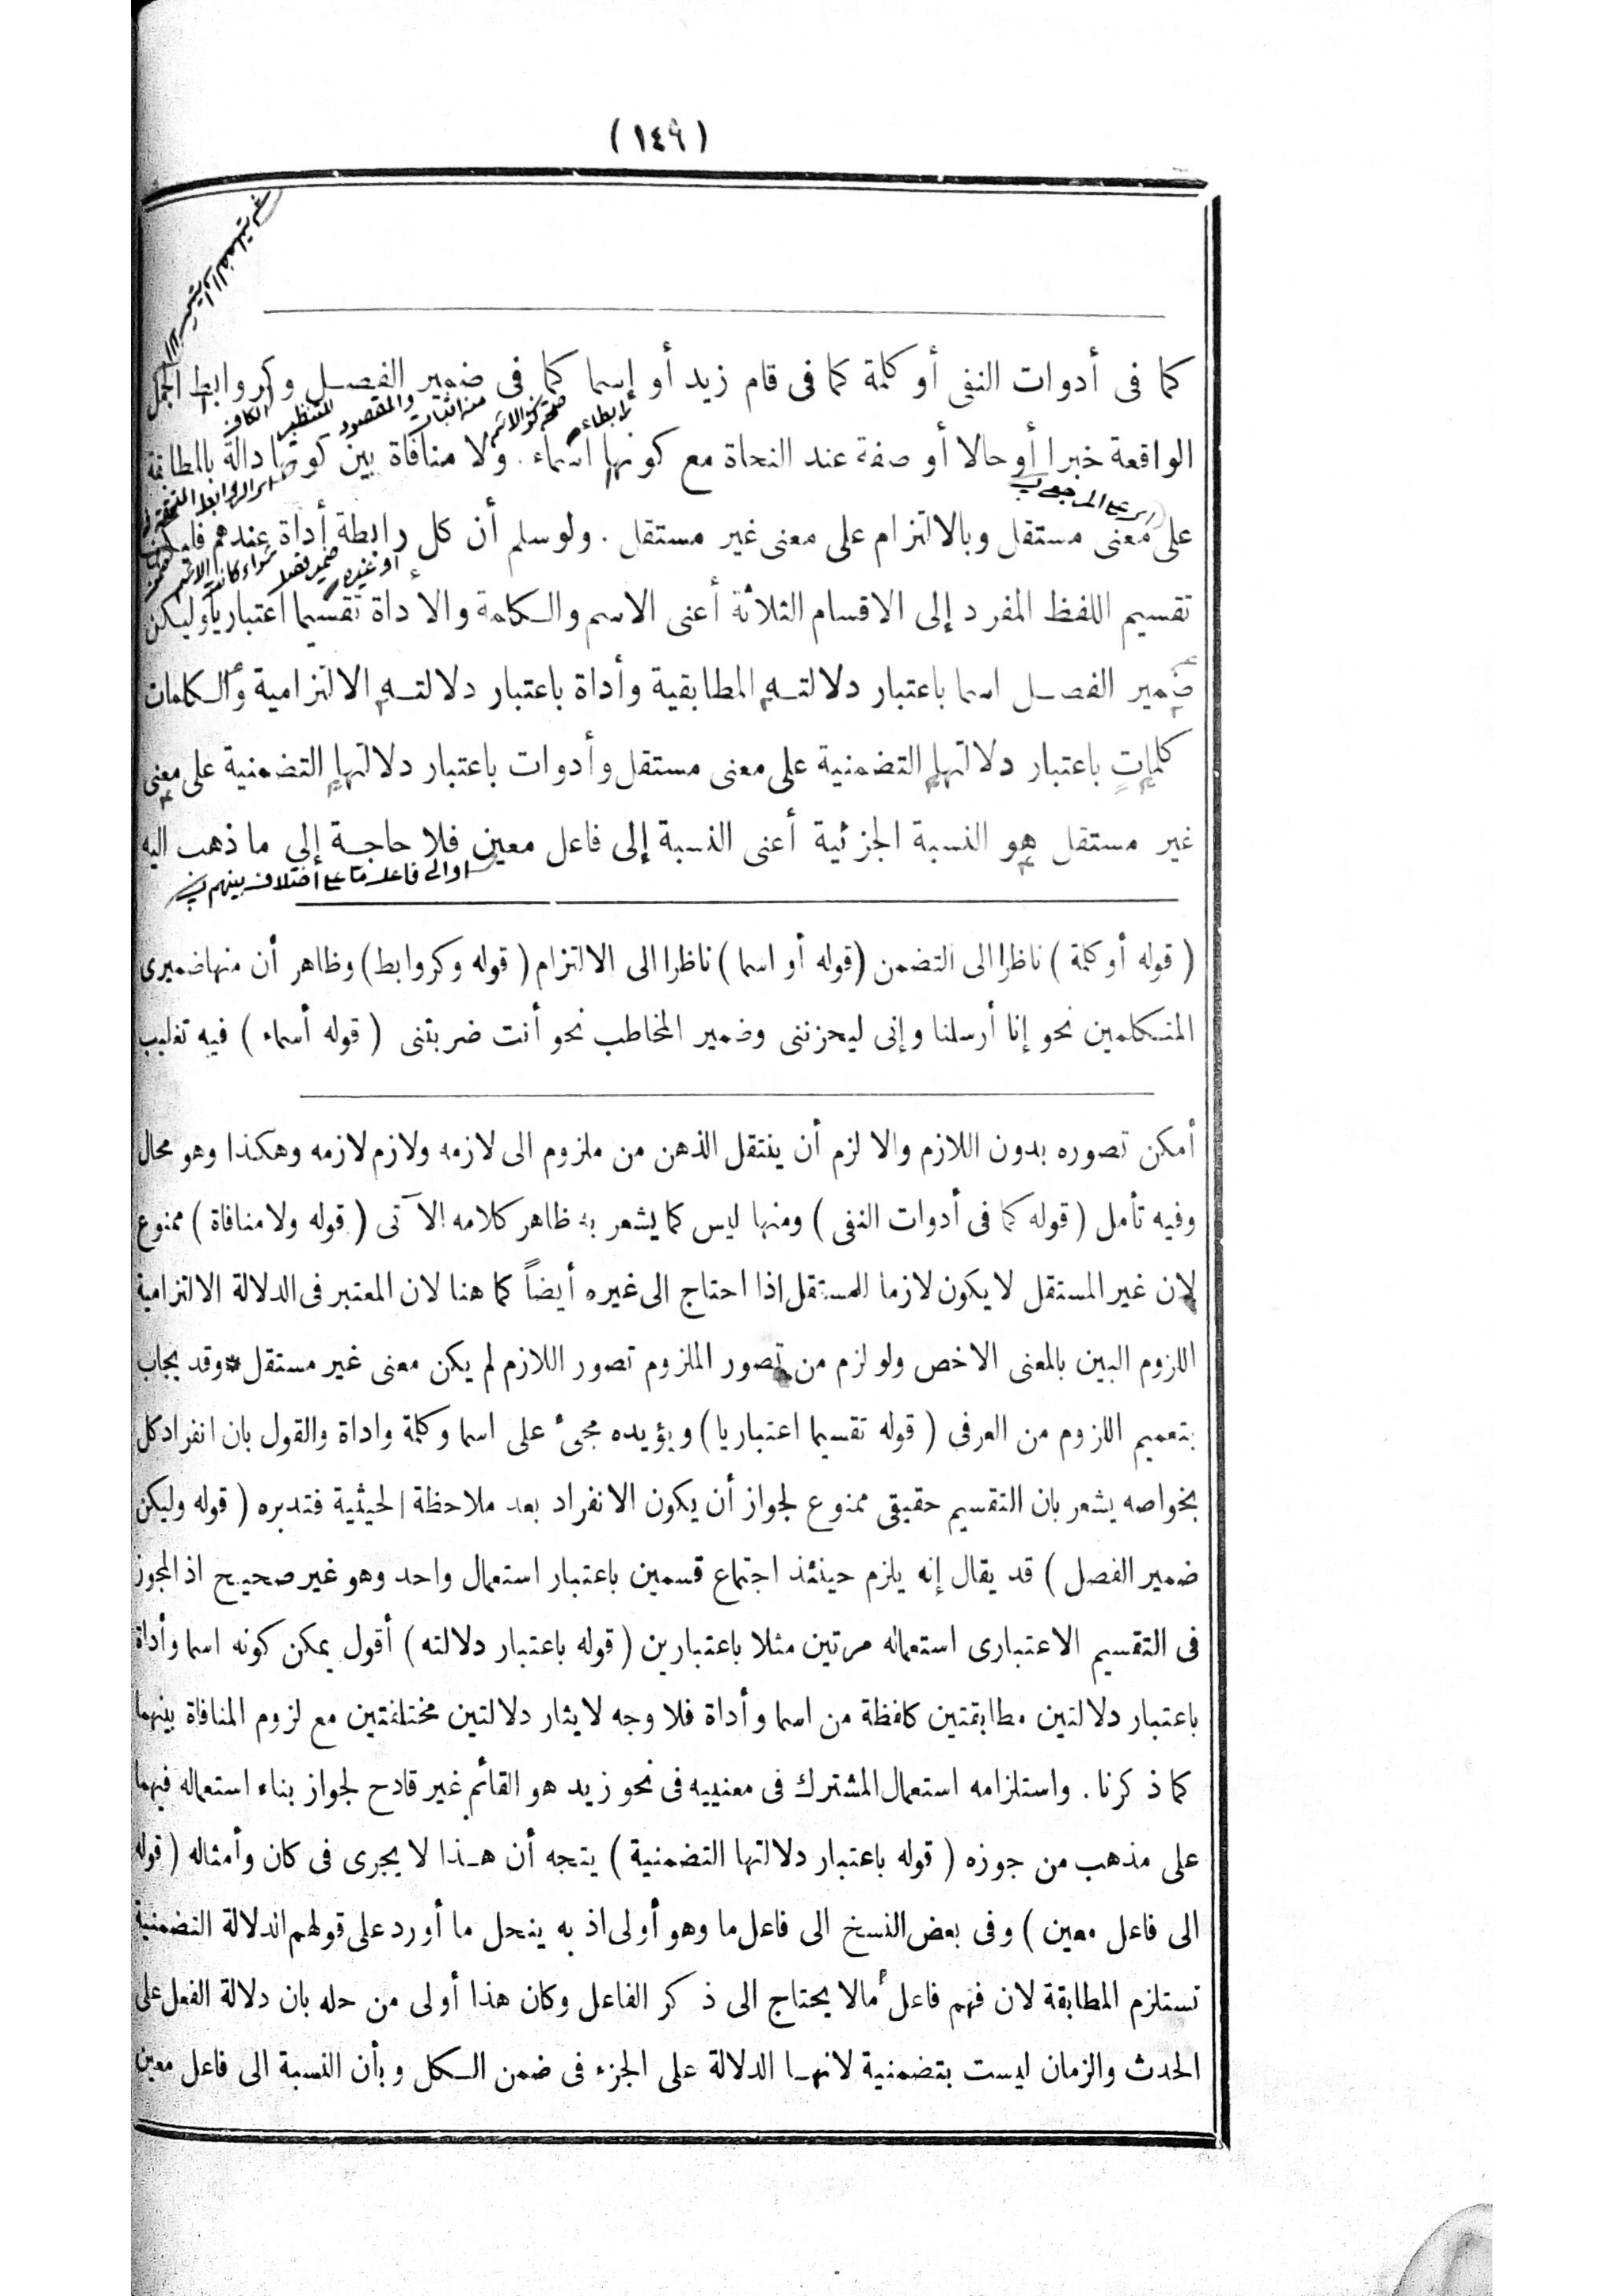 (١٤٩)
كما فى أدوات النفى أو كلمة كما فى قام زيد أو إسما كما فى ضمير الفصل وكروابط الجمل
الواقعة خبرا أوحالا أو صفة عند النحاة مع كونها اسماء. ولا منافاة بين كونها دالة بالمطابقة
على معنى مستقل وبالالتزام على معنى غير مستقل. ولو سلم أن كل رابطة أداة عندهم فليكن
تقسيم اللفظ المفرد إلى الاقسام الثلاثة أعنى الاسم والكلمة والاداة تقسيما اعتباريا وليكن
ضمير الفصل اسما باعتبار دلالته المطابقية وأداة باعتبار دلالته الالتزامية والكلمات
كلمات باعتبار دلالتها التضمنية على معنى مستقل وأدوات باعتبار دلالتها التضمنية على معنى
غير مستقل هو النسبة الجزئية أعنى النسبة إلى فاعل معين فلا حاجة إلى ما ذهب اليه
او الى فاعل ما على اختلاف بينهم
(قوله أو كلمة) ناظرا الى التضمن (قوله أو اسما) ناظرا الى الالتزام (قوله وكروابط) وظاهر أن منها ضميرى
المتكلمين نحو إنا أرسلنا وإنى ليحزننى وضمير المخاطب نحو أنت ضربتنى (قوله أسماء) فيه تغليب
أمكن تصوره بدون اللازم والا لزم أن ينتقل الذهن من ملزوم الى لازمه ولازم لازمه وهكذا وهو محال
وفيه تأمل (قوله كما فى أدوات النفى) ومنها ليس كما يشعر به ظاهر كلامه الآتى (قوله ولا منافاة) ممنوع
لان غير المستقل لا يكون لازما للمستقل اذا احتاج الى غيره أيضاً كما هنا لان المعتبر فى الدلالة الالتزامية
اللزوم البين بالمعنى الاخص ولو لزم من تصور الملزوم تصور اللازم لم يكن معنى غير مستقل * وقد يجاب
بتعميم اللزوم من العرفى (قوله تقسيما اعتباريا) ويؤيده مجئ على اسما وكلمة واداة والقول بان انفراد كل
بخواصه يشعر بان التقسيم حقيقى ممنوع لجواز أن يكون الانفراد بعد ملاحظة الحيثية فتدبره (قوله وليكن
ضمير الفصل) قد يقال إنه يلزم حينئذ اجتماع قسمين باعتبار استعمال واحد وهو غير صحيح اذ المجوز
فى التقسيم الاعتبارى استعماله مرتين مثلا باعتبارين (قوله باعتبار دلالته) أقول يمكن كونه اسما وأداة
باعتبار دلالتين مطابقتين كلفظة من اسما وأداة فلا وجه لايثار دلالتين مختلفتين مع لزوم المنافاة بينهما
كما ذكرنا. واستلزامه استعمال المشترك فى معنييه فى نحو زيد هو القائم غير قادح لجواز بناء استعماله فيهما
على مذهب من جوزه (قوله باعتبار دلالتها التضمنية) يتجه أن هذا لا يجرى فى كان وأمثاله (قوله
الى فاعل معين) وفى بعض النسخ الى فاعل ما وهو أولى اذ به ينحل ما أورد على قولهم الدلالة التضمنية
تستلزم المطابقة لان فهم فاعل ما لا يحتاج الى ذكر الفاعل وكان هذا أولى من حله بان دلالة الفعل على
الحدث والزمان ليست بتضمنية لانها الدلالة على الجزء فى ضمن الكل وبأن النسبة الى فاعل معين